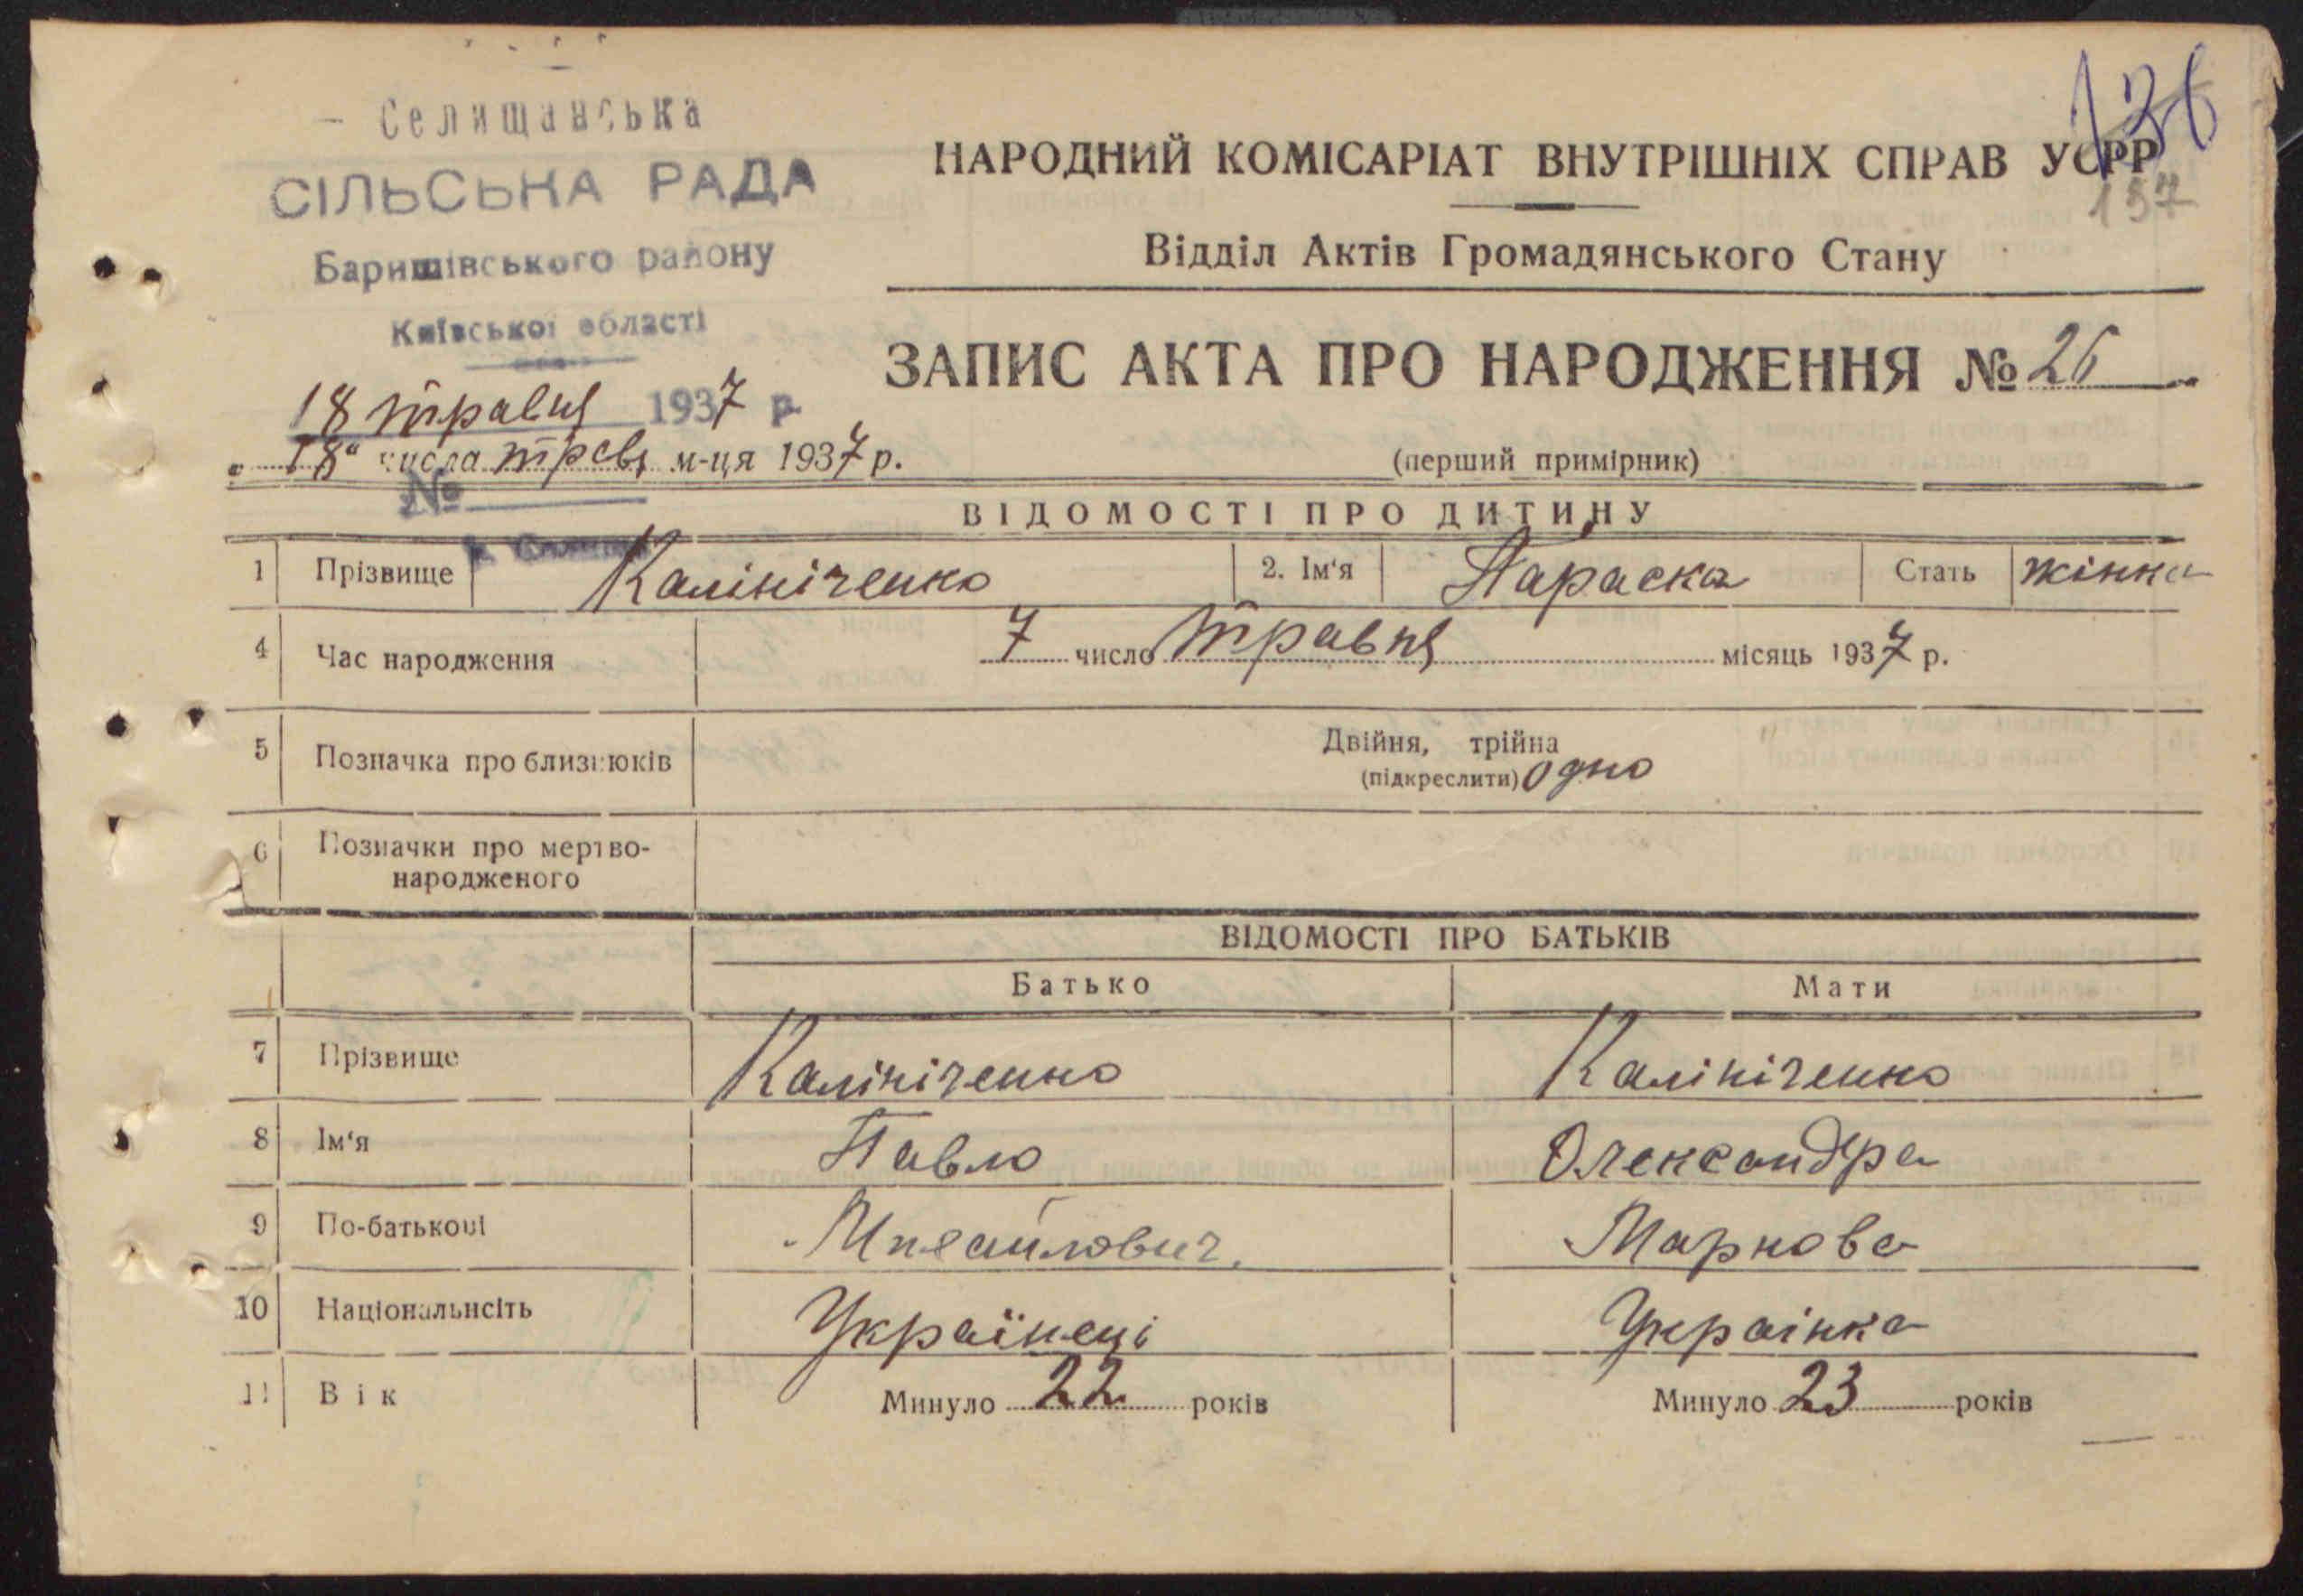 Селищанська
СІЛЬСЬКА РАДА
Баришівського району
Київської області
18 травня 1937 р.
№
136
157
НАРОДНИЙ КОМІСАРІАТ ВНУТРІШНІХ СПРАВ УСРР
Відділ Актів Громадянського Стану
ЗАПИС АКТА ПРО НАРОДЖЕННЯ № 26
„18“ числа травн м-ця 1937 р.
(перший примірник)
ВІДОМОСТІ ПРО ДИТИНУ
1 Прізвище Калініченко 2. Ім'я Параска Стать жінка
4 Час народження 7 число травня місяць 1937 р.
5 Позначка про близнюків Двійня, трійна
(підкреслити) одно
6 Позначки про мертво-
народженого
ВІДОМОСТІ ПРО БАТЬКІВ
Батько Мати
7 Прізвище Калініченко Калініченко
8 Ім'я Павло Олександра
9 По-батькові Михайлович. Маркова
10 Національнсіть Українець Украінка
11 Вік Минуло 22 років Минуло 23 років